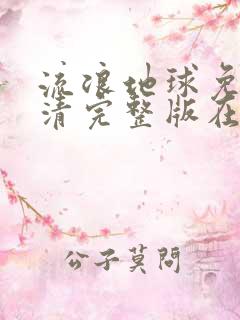 流浪地球免
清完整版在
公子莫问